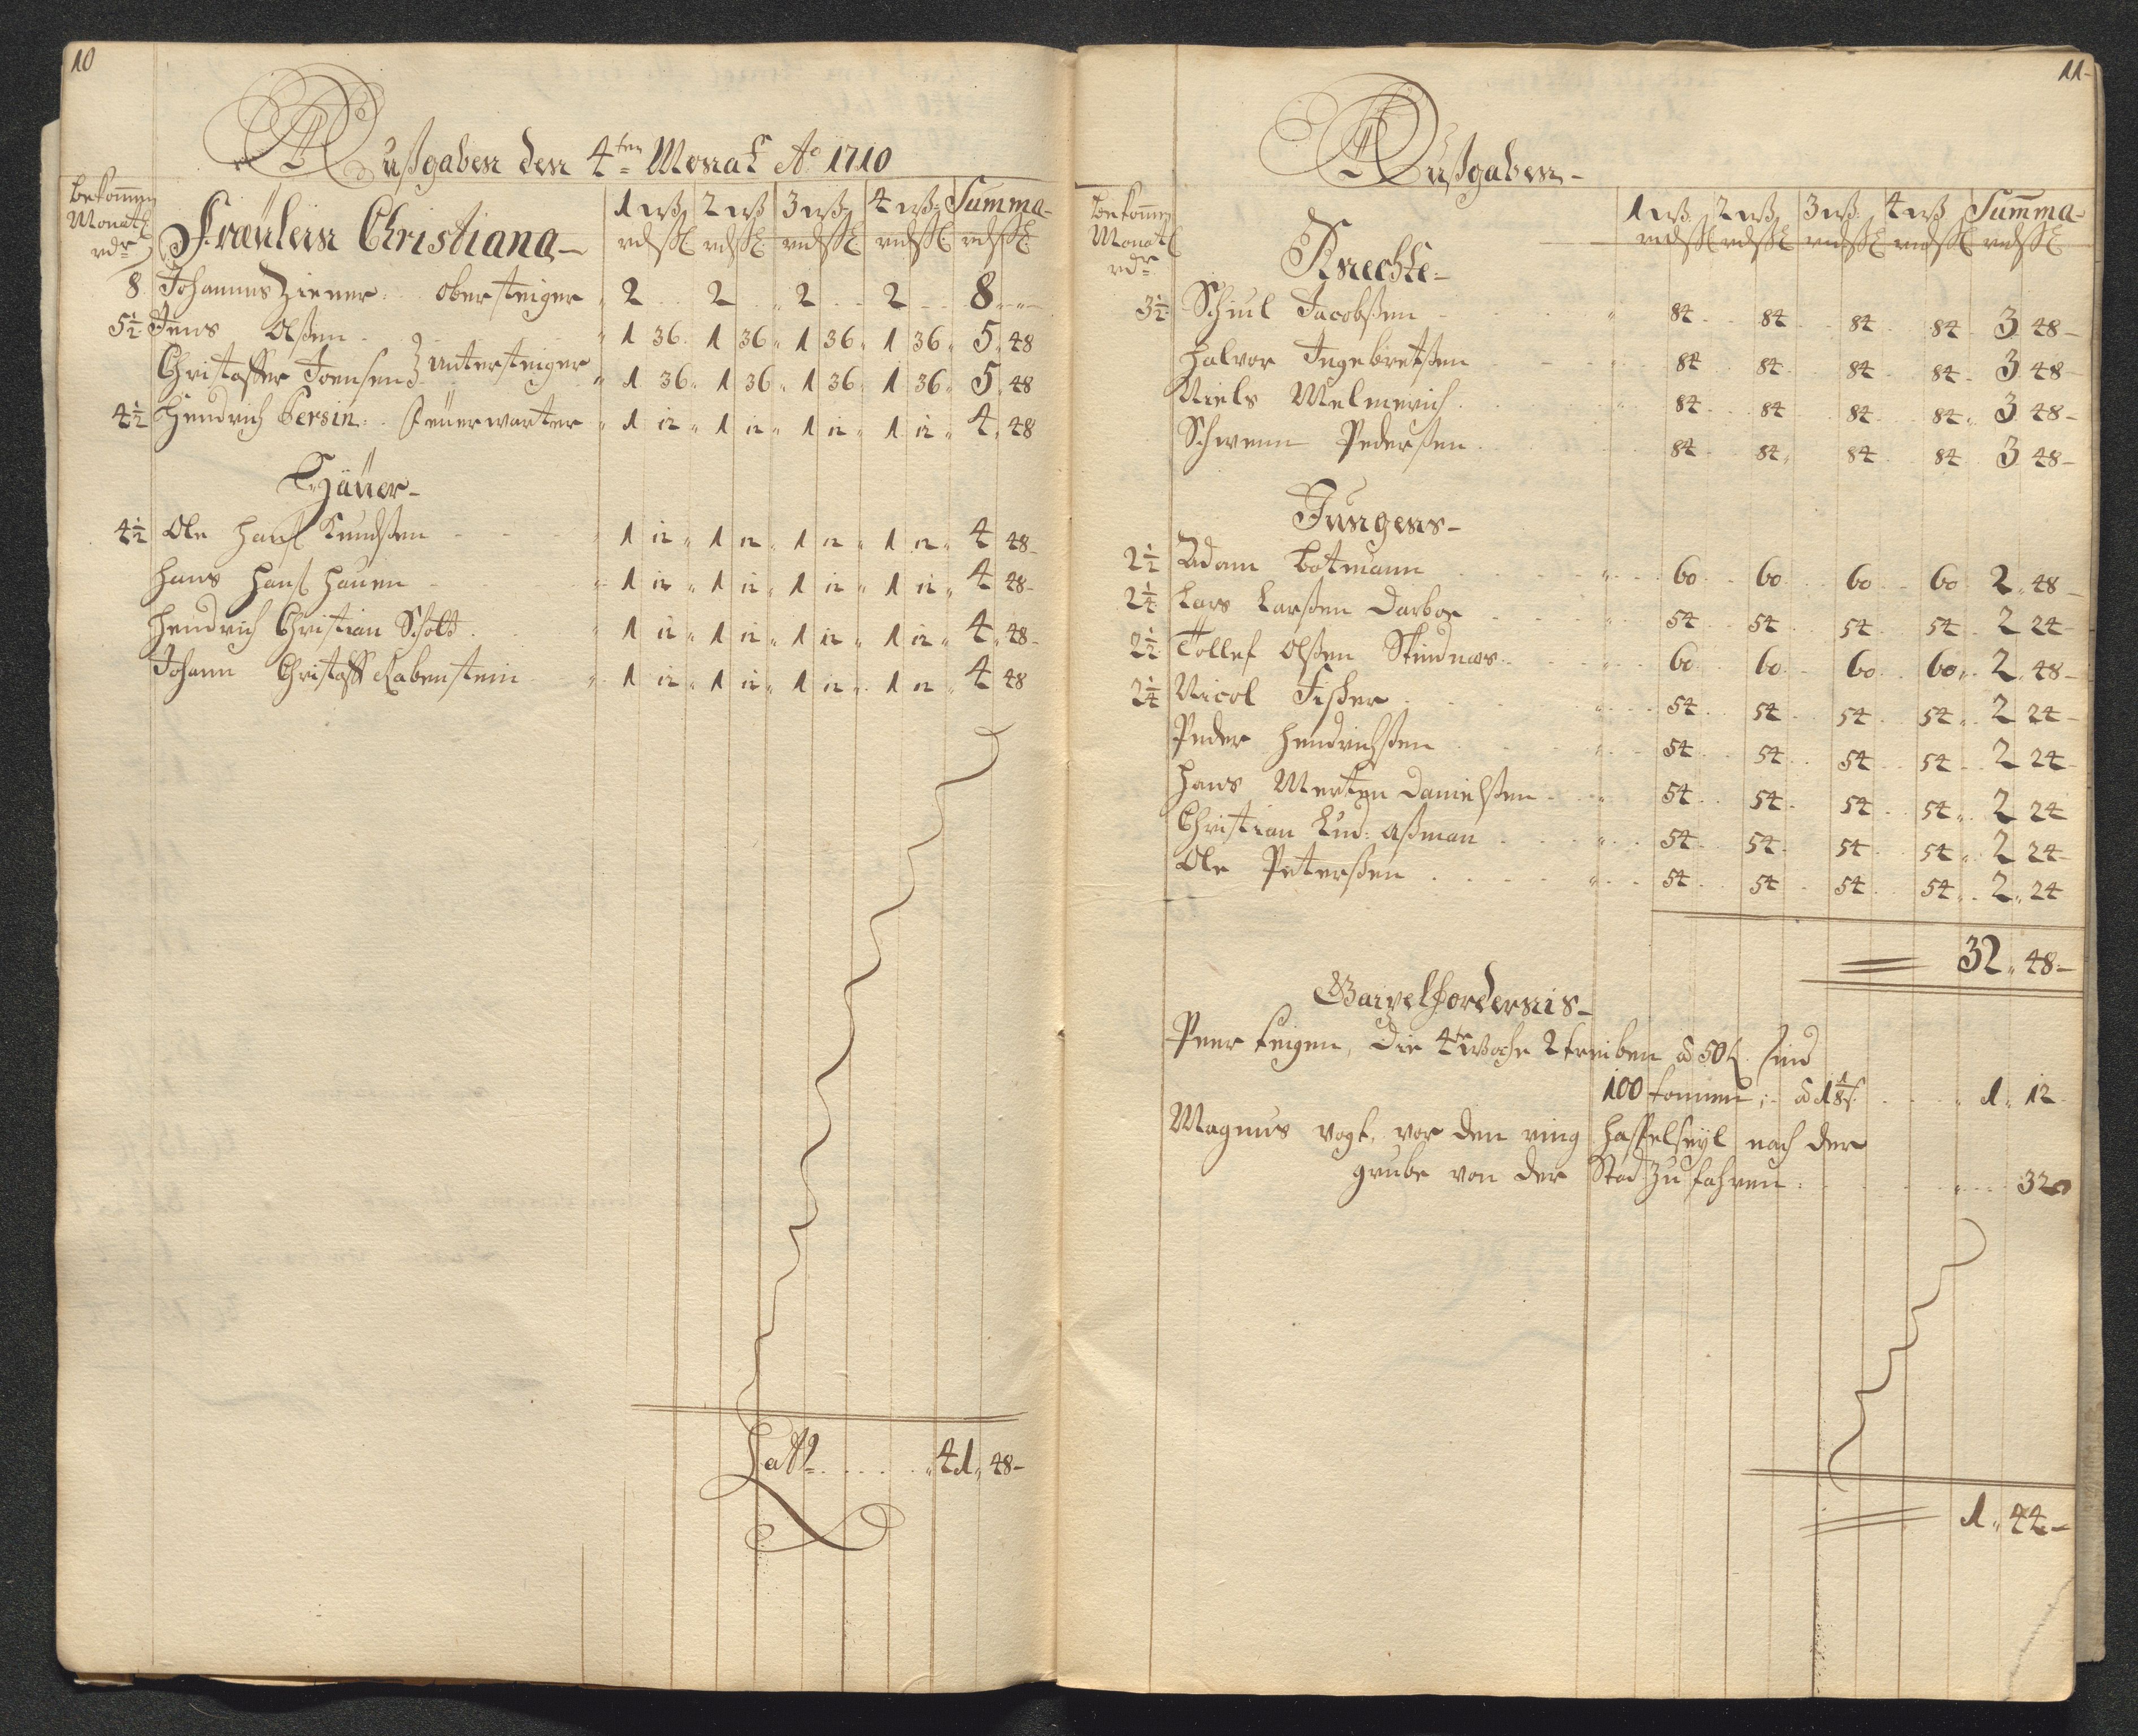 10
Außgaben den 4ten Monat Ao 1710
bekomen Monatl rdr
Fræulein Christiana
1 wß 2 wß 3 wß 4 wß Summa
rdßl rdßl rdßl rdßl rdßl
8 Johannes Ziener obersteiger 2 2 2 2 8
5½ Jens Olßen 1 36 1 36 1 36 1 36 5 48
Christoffer Joensen untersteiger 1 36 1 36 1 36 1 36 5 48
4½ Hendrich Gersin feüerwarter 1 12 1 12 1 12 1 12 4 48
Häüer
4½ Ole Hanß Knudßen 1 12 1 12 1 12 1 12 4 48
Hans Hanß Hauen 1 12 1 12 1 12 1 12 4 48
Hendrich Christian Scholtz 1 12 1 12 1 12 1 12 4 48
Johann Christoff Rabenstein 1 12 1 12 1 12 1 12 4 48
Latt 41 48
11
Außgaben
bekomen Monatl rdr
1 wß 2 wß 3 wß 4 wß Summa
rdßl rdßl rdßl rdßl rdßl
Knechte
3½ Schiul Jacobßen 84 84 84 84 3 48
Halvor Ingebretßen 84 84 84 84 3 48
Niels Melmerich 84 84 84 84 3 48
Schwenn Pederßen 84 84 84 84 3 48
Jungens
2½ Adam Botmann 60 60 60 60 2 48
2¼ Lars Larßen Darboe 54 54 54 54 2 24
2½ Tollef Olßen Skindnæs 60 60 60 60 2 48
2¼ Nicol Fisher 54 54 54 54 2 24
Peder Hendrichßen 54 54 54 54 2 24
Hans Merten Danielßen 54 54 54 54 2 24
Christian Lud: Aßman 54 54 54 54 2 24
Ole Peterßen 54 54 54 54 2 24
32 48
Gaipelfordernis
Peer Teigen, die 4te Woche 2 treiben à 50 t. sind
100 tonnen à 1⅛ ß 1 12
Magnus Vogt, vor den ring haspelseyl nach der
grube von der Stad zu fahren 32
1 44